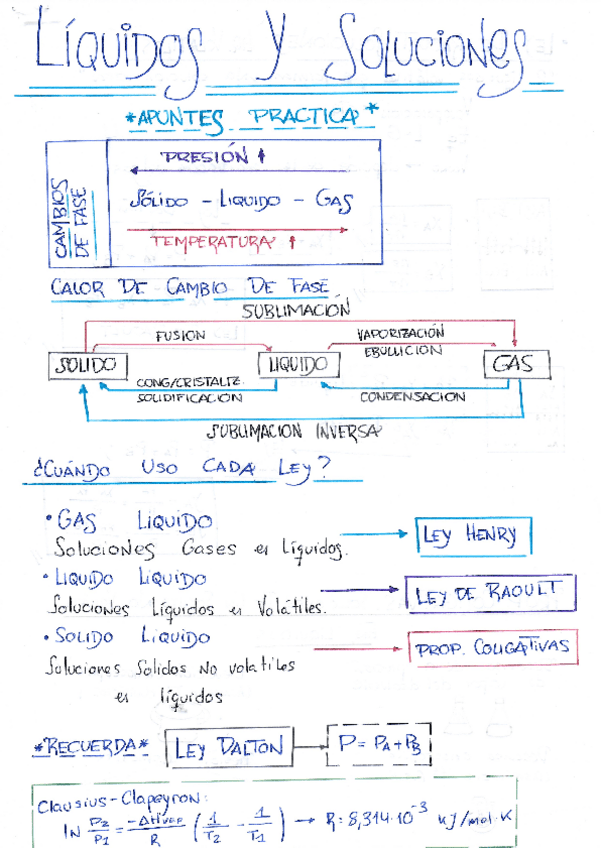 LÍQUIDOS Y SOLUCIONES
*APUNTES PRACTICA*
CAMBIOS DE FASE
PRESIÓN ↑
SÓLIDO - LIQUIDO - GAS
TEMPERATURA ↑
CALOR DE CAMBIO DE FASE
SUBLIMACIÓN
FUSION
VAPORIZACIÓN
EBULLICION
SOLIDO
LIQUIDO
GAS
CONG/CRISTALIZ.
SOLIDIFICACION
CONDENSACION
SUBLIMACION INVERSA
¿CUÁNDO USO CADA LEY?
• GAS LIQUIDO
Soluciones Gases en Líquidos. → LEY HENRY
• LIQUIDO LIQUIDO
Soluciones Líquidos en Volátiles. → LEY DE RAOULT
• SOLIDO LIQUIDO
Soluciones Solidos No volatiles → PROP. COLIGATIVAS
en líquidos
*RECUERDA* LEY DALTON → P = PA + PB
Clausius-Clapeyron:
ln P2/P1 = -ΔHvap/R (1/T2 - 1/T1) → R: 8,314·10⁻³ kJ/mol·K